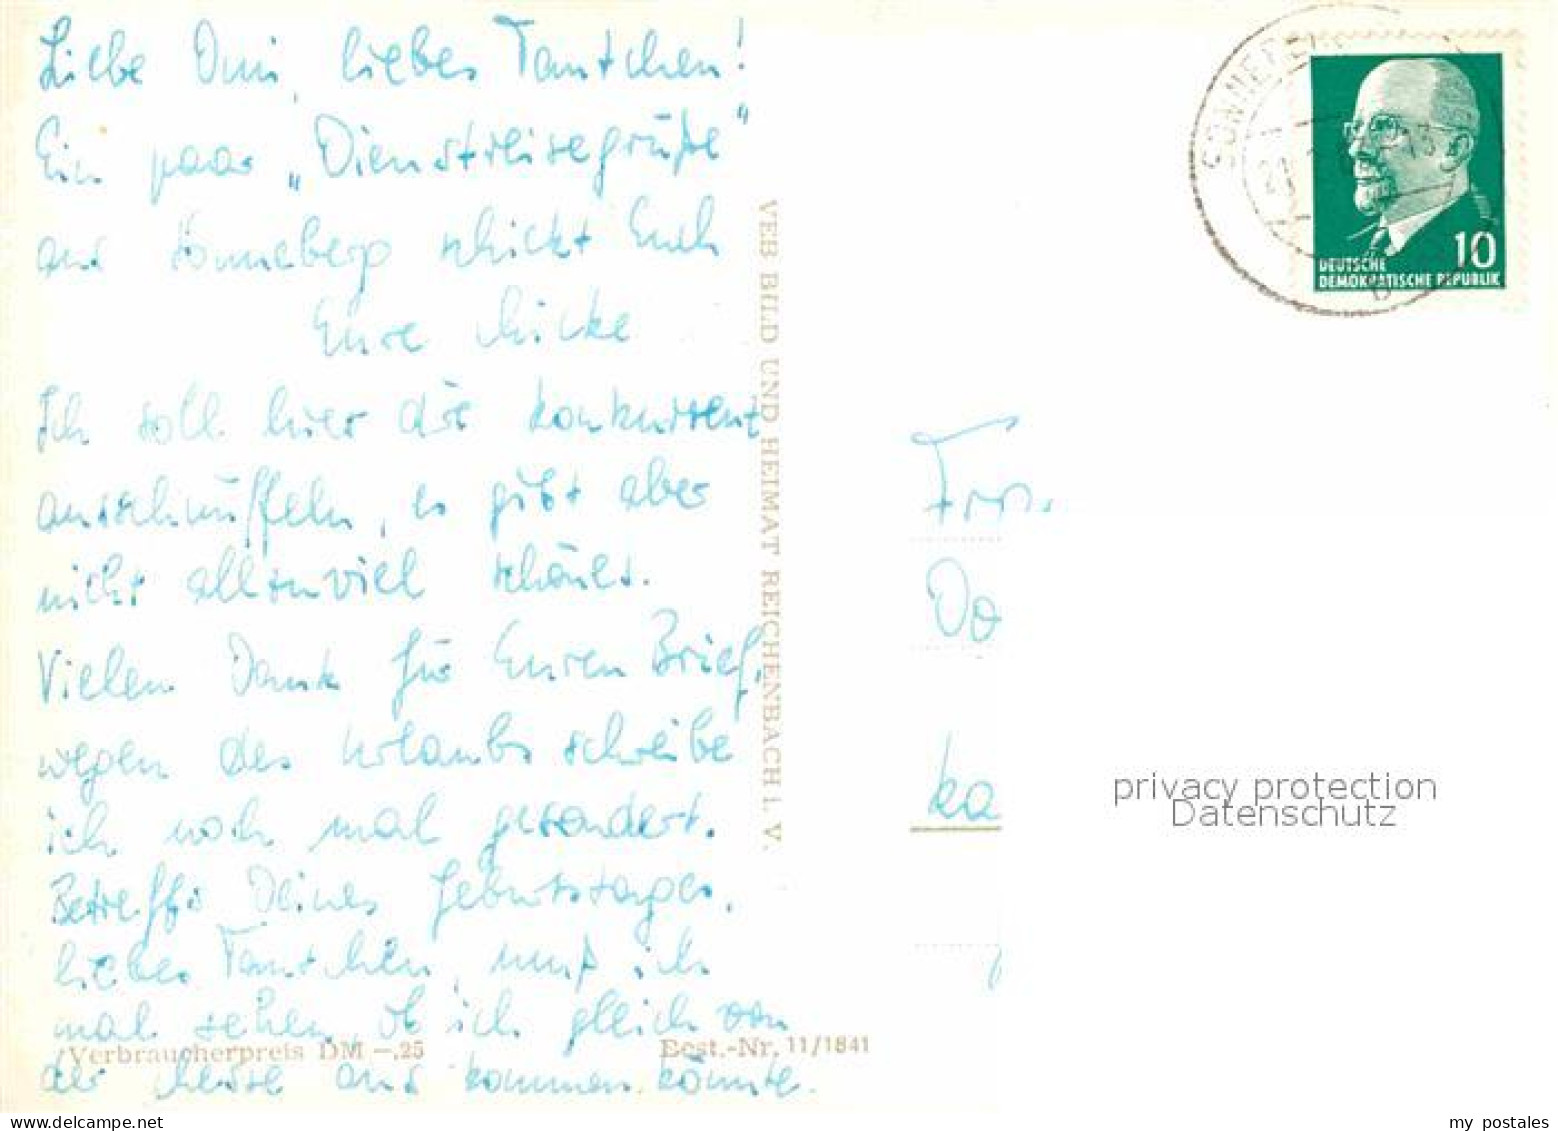 Liebe Omi, liebes Tantchen!
Ein paar „Dienstreisegrüße"
aus Sonneberg schickt Euch
Eure Micke
Ich soll hier die Konkurrenz
ausschnüffeln, es gibt aber
nicht allzuviel schönes.
Vielen Dank für Euren Brief,
wegen des Urlaubs schreibe
ich noch mal gesondert.
Betreffs Deines Geburtstages,
liebes Tantchen, muß ich
mal sehen, ob ich gleich von
der Messe aus kommen könnte.
Verbraucherpreis DM –,25
Best.-Nr. 11/1841
VEB BILD UND HEIMAT REICHENBACH i. V.
SONNEBERG
10
DEUTSCHE
DEMOKRATISCHE REPUBLIK
Do
Ka
privacy protection
Datenschutz
my postales